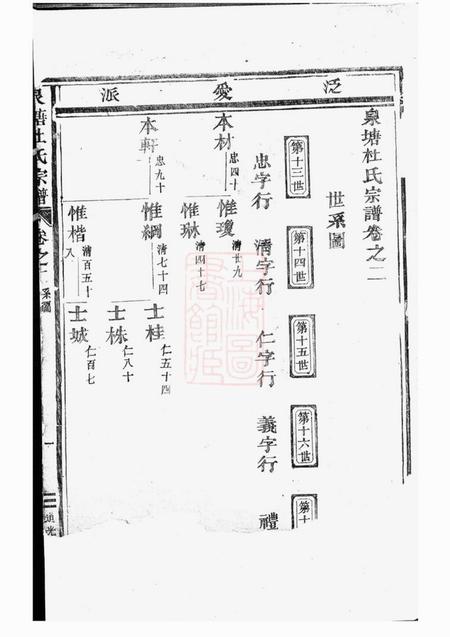 泛愛派
泉塘杜氏宗譜卷之二
世系圖
第十三世
第十四世
第十五世
第十六世
第十
忠字行
清字行
仁字行
義字行
禮
本材 忠四十
惟瓊 清廿九
惟琳 清四十七
本軒 忠九十
惟綱 清七十四
士桂 仁五十四
士株 仁八十
惟楷 清百五十八
士城 仁百七
泉塘杜氏宗譜
卷之二
系圖
一